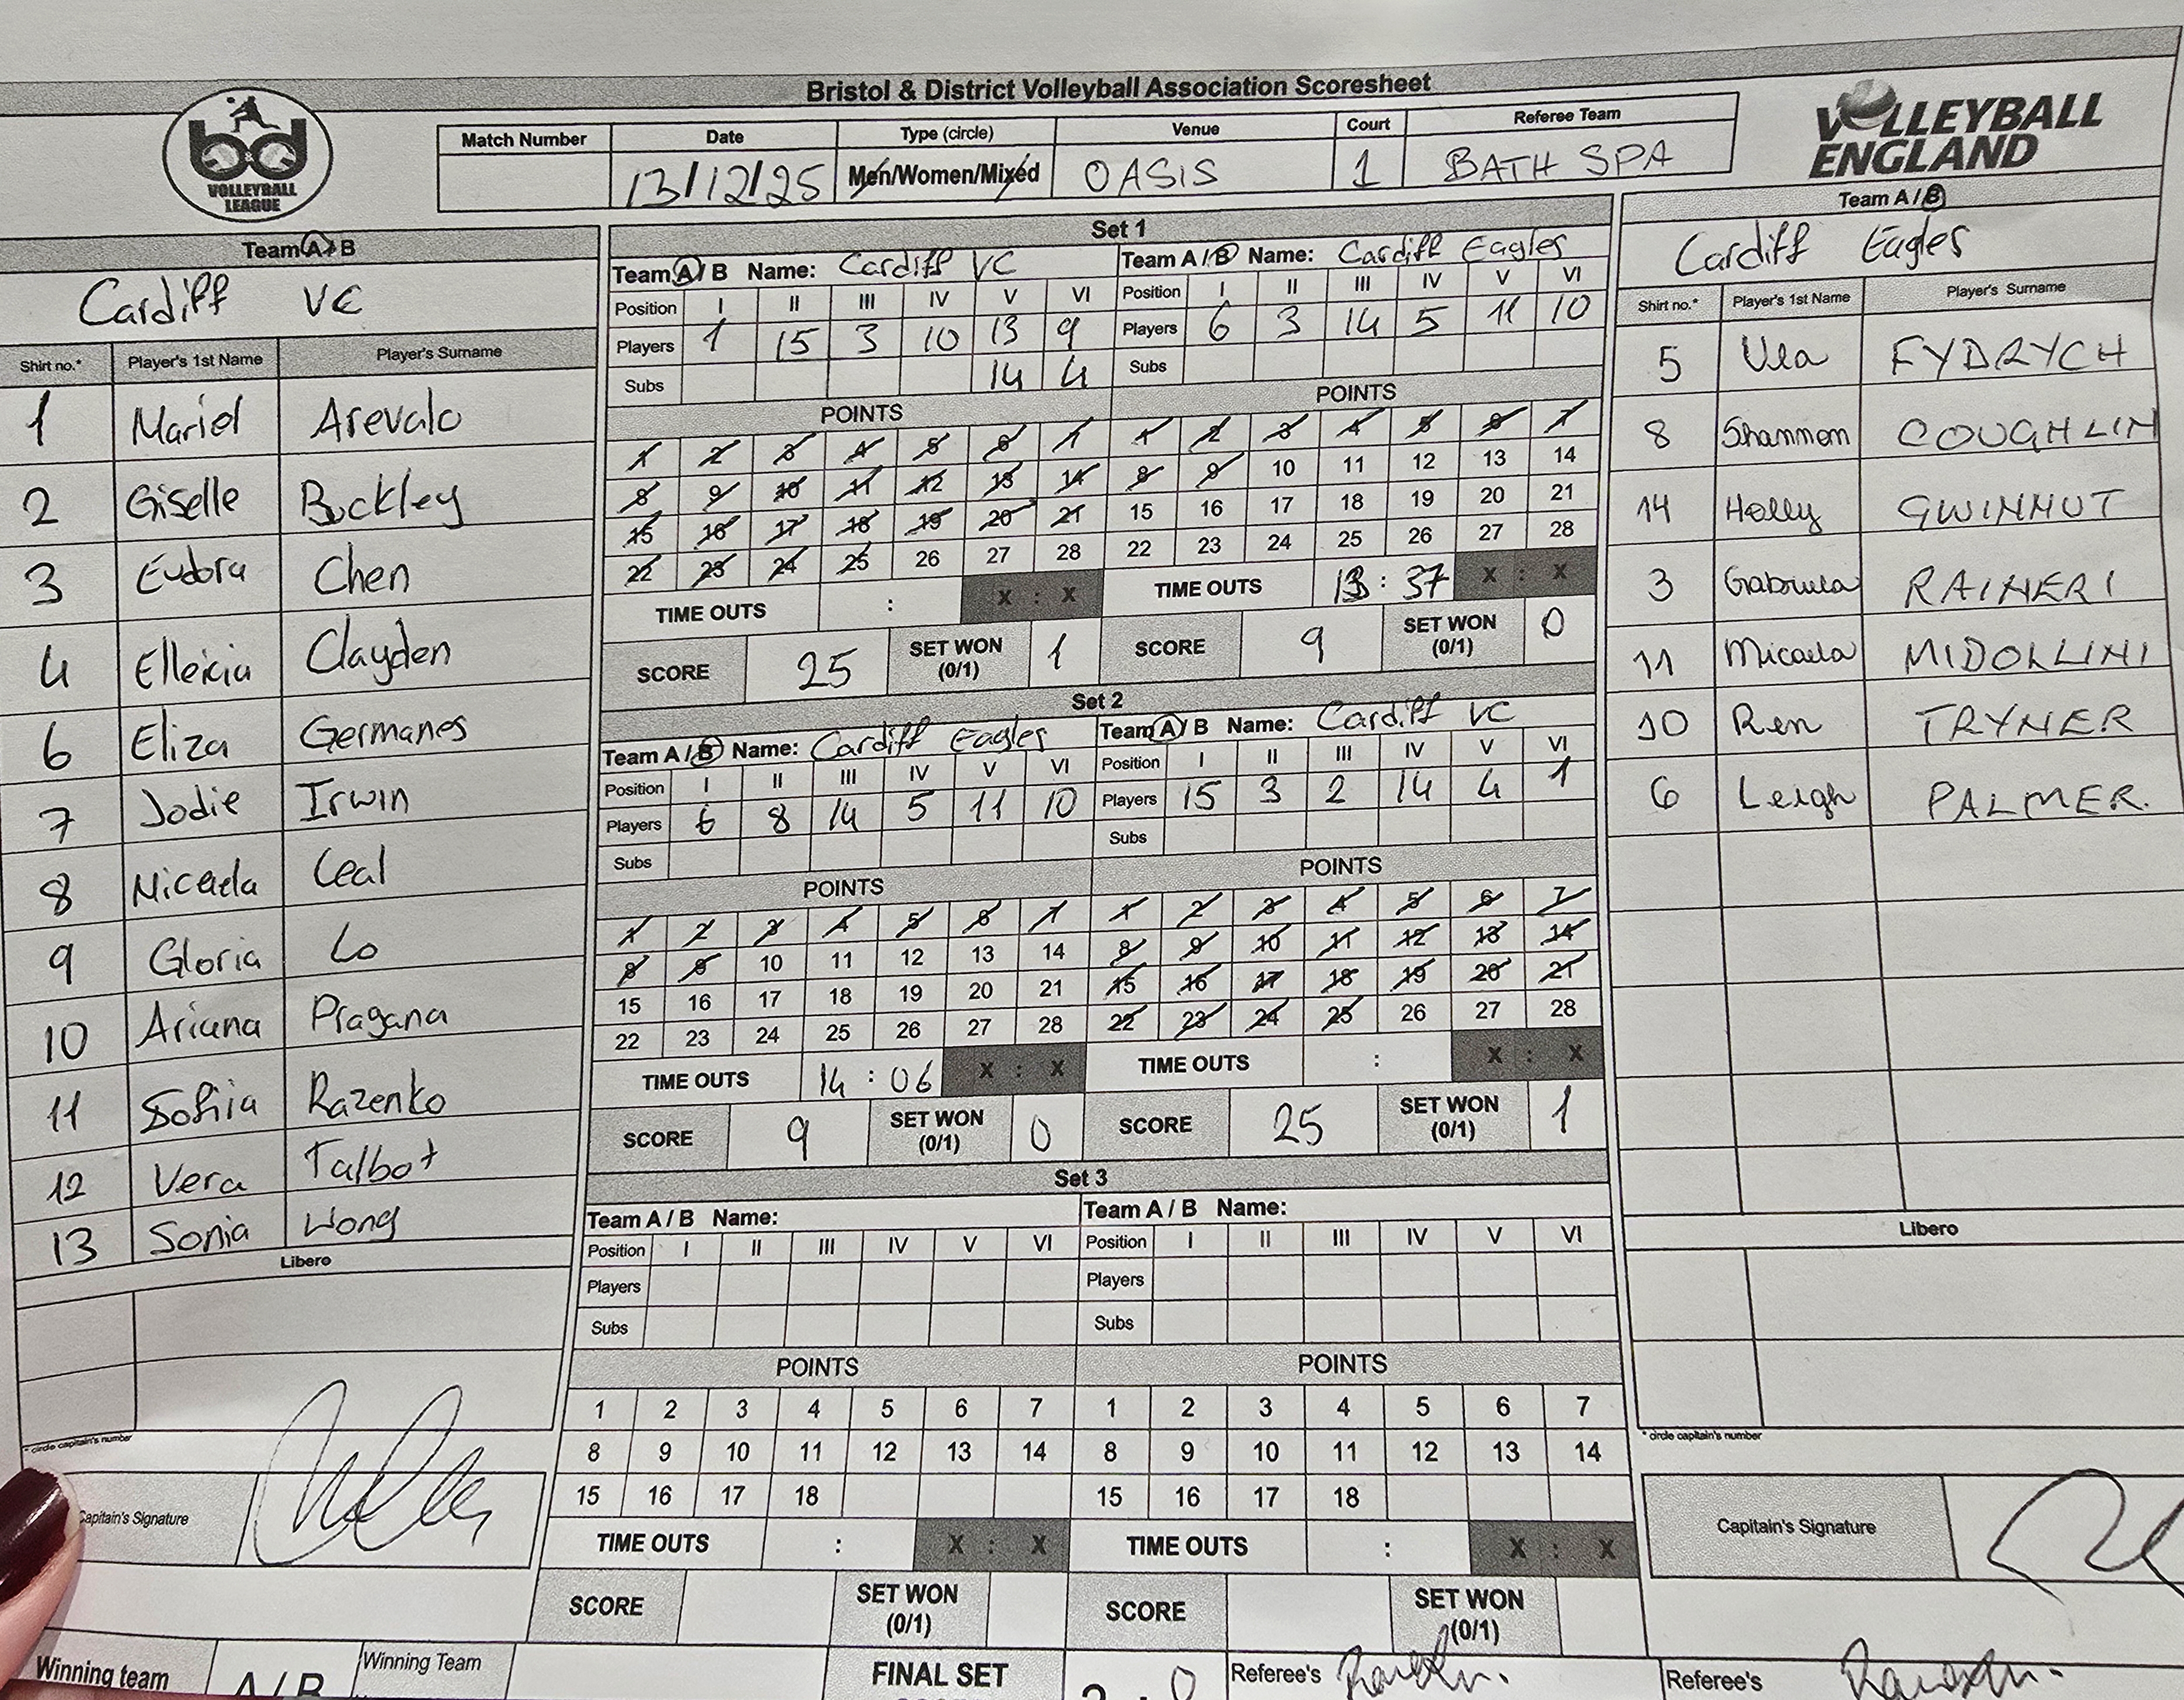 Bristol & District Volleyball Association Scoresheet
bd
VOLLEYBALL
LEAGUE
VOLLEYBALL
ENGLAND
Match Number Date Type (circle) Venue Court Referee Team
13/12/25 Men/Women/Mixed OASIS 1 BATH SPA
Team A / B
Cardiff VC
Shirt no.* Player's 1st Name Player's Surname
1 Mariel Arevalo
2 Giselle Buckley
3 Eudora Chen
4 Elleicia Clayden
6 Eliza Germanes
7 Jodie Irwin
8 Micaela Leal
9 Gloria Lo
10 Ariana Pragana
11 Sofiia Razenko
12 Vera Talbot
13 Sonia Wong
Libero
* circle capitain's number
Capitain's Signature
Set 1
Team A / B Name: Cardiff VC
Position I II III IV V VI
Players 1 15 3 10 13 9
Subs 14 4
POINTS
1 2 3 4 5 6 7
8 9 10 11 12 13 14
15 16 17 18 19 20 21
22 23 24 25 26 27 28
TIME OUTS : X : X
SCORE 25 SET WON (0/1) 1
Team A / B Name: Cardiff Eagles
Position I II III IV V VI
Players 6 3 14 5 11 10
Subs
POINTS
1 2 3 4 5 6 7
8 9 10 11 12 13 14
15 16 17 18 19 20 21
22 23 24 25 26 27 28
TIME OUTS 13 : 37 X : X
SCORE 9 SET WON (0/1) 0
Set 2
Team A / B Name: Cardiff Eagles
Position I II III IV V VI
Players 6 8 14 5 11 10
Subs
POINTS
1 2 3 4 5 6 7
8 9 10 11 12 13 14
15 16 17 18 19 20 21
22 23 24 25 26 27 28
TIME OUTS 14 : 06 X : X
SCORE 9 SET WON (0/1) 0
Team A / B Name: Cardiff VC
Position I II III IV V VI
Players 15 3 2 14 4 1
Subs
POINTS
1 2 3 4 5 6 7
8 9 10 11 12 13 14
15 16 17 18 19 20 21
22 23 24 25 26 27 28
TIME OUTS : X : X
SCORE 25 SET WON (0/1) 1
Set 3
Team A / B Name:
Position I II III IV V VI
Players
Subs
POINTS
1 2 3 4 5 6 7
8 9 10 11 12 13 14
15 16 17 18
TIME OUTS : X : X
SCORE SET WON (0/1)
Team A / B Name:
Position I II III IV V VI
Players
Subs
POINTS
1 2 3 4 5 6 7
8 9 10 11 12 13 14
15 16 17 18
TIME OUTS : X : X
SCORE SET WON (0/1)
Team A / B
Cardiff Eagles
Shirt no.* Player's 1st Name Player's Surname
5 FYDRYCH
8 Shannon COUGHLIN
14 Holly GWINNUT
3 Gabriela RAINERI
11 Micaela MIDOLLINI
10 Ren TRYNER
6 Leigh PALMER.
Libero
* circle capitain's number
Capitain's Signature
Winning team A / B Winning Team FINAL SET 2 : 0 Referee's Referee's